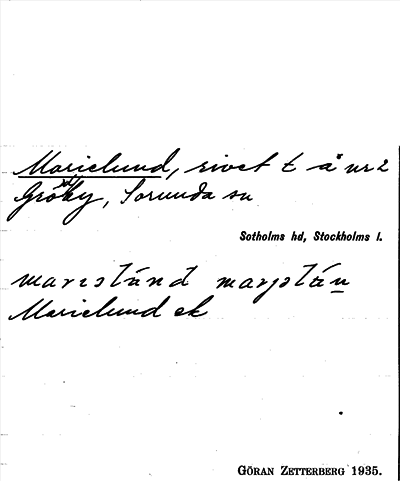 Marielund, rivet t å nr 2
Gröky, Sorunda sn
Sotholms hd, Stockholms l.
Marielund ek
GÖRAN ZETTERBERG 1935.